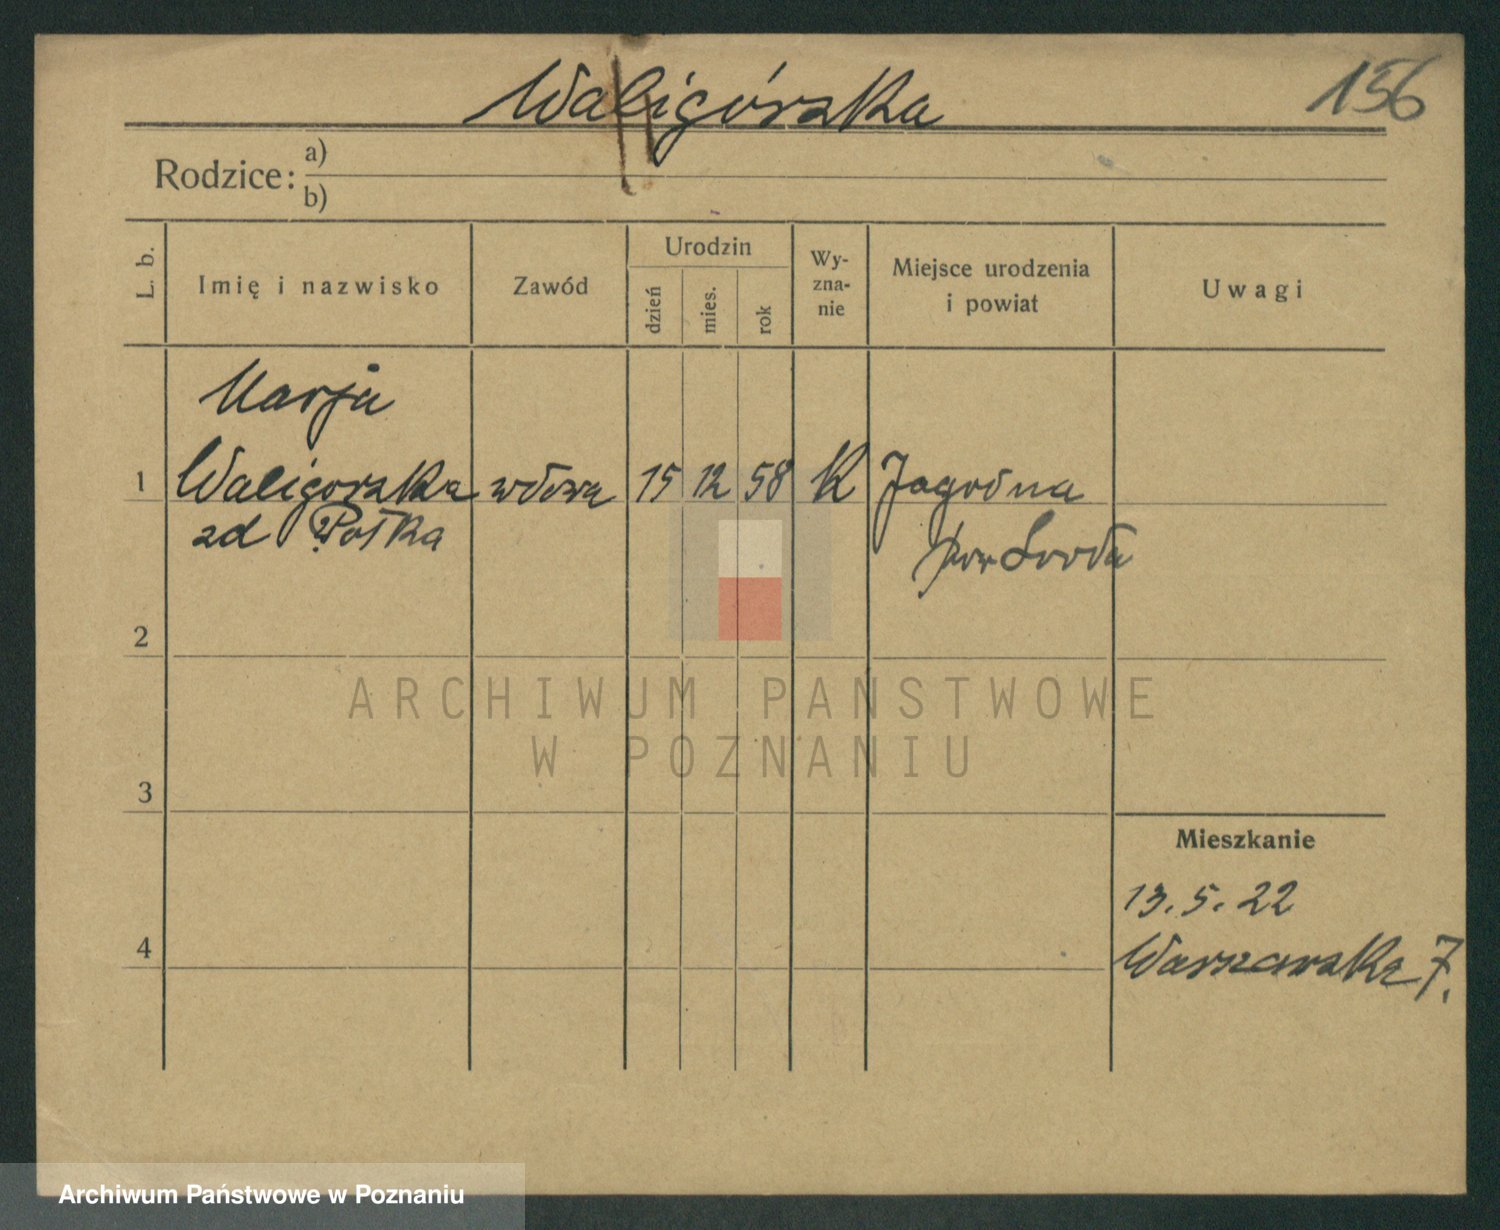 Waligórska
156
Rodzice:
a)
b)
L. b.
Imię i nazwisko
Zawód
Urodzin
dzień
mies.
rok
Wy-
zna-
nie
Miejsce urodzenia
i powiat
Uwagi
Marja
1 Waligorska wdowa 15 12 58 K Jagodna
zd Połka pow Środa
2
ARCHIWUM PAŃSTWOWE
W POZNANIU
3
Mieszkanie
13.5.22
4 Warszawska 7.
Archiwum Państwowe w Poznaniu